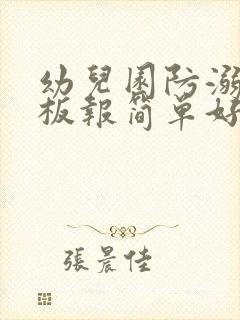 幼兒園防溺
板報简单好
張晨佳